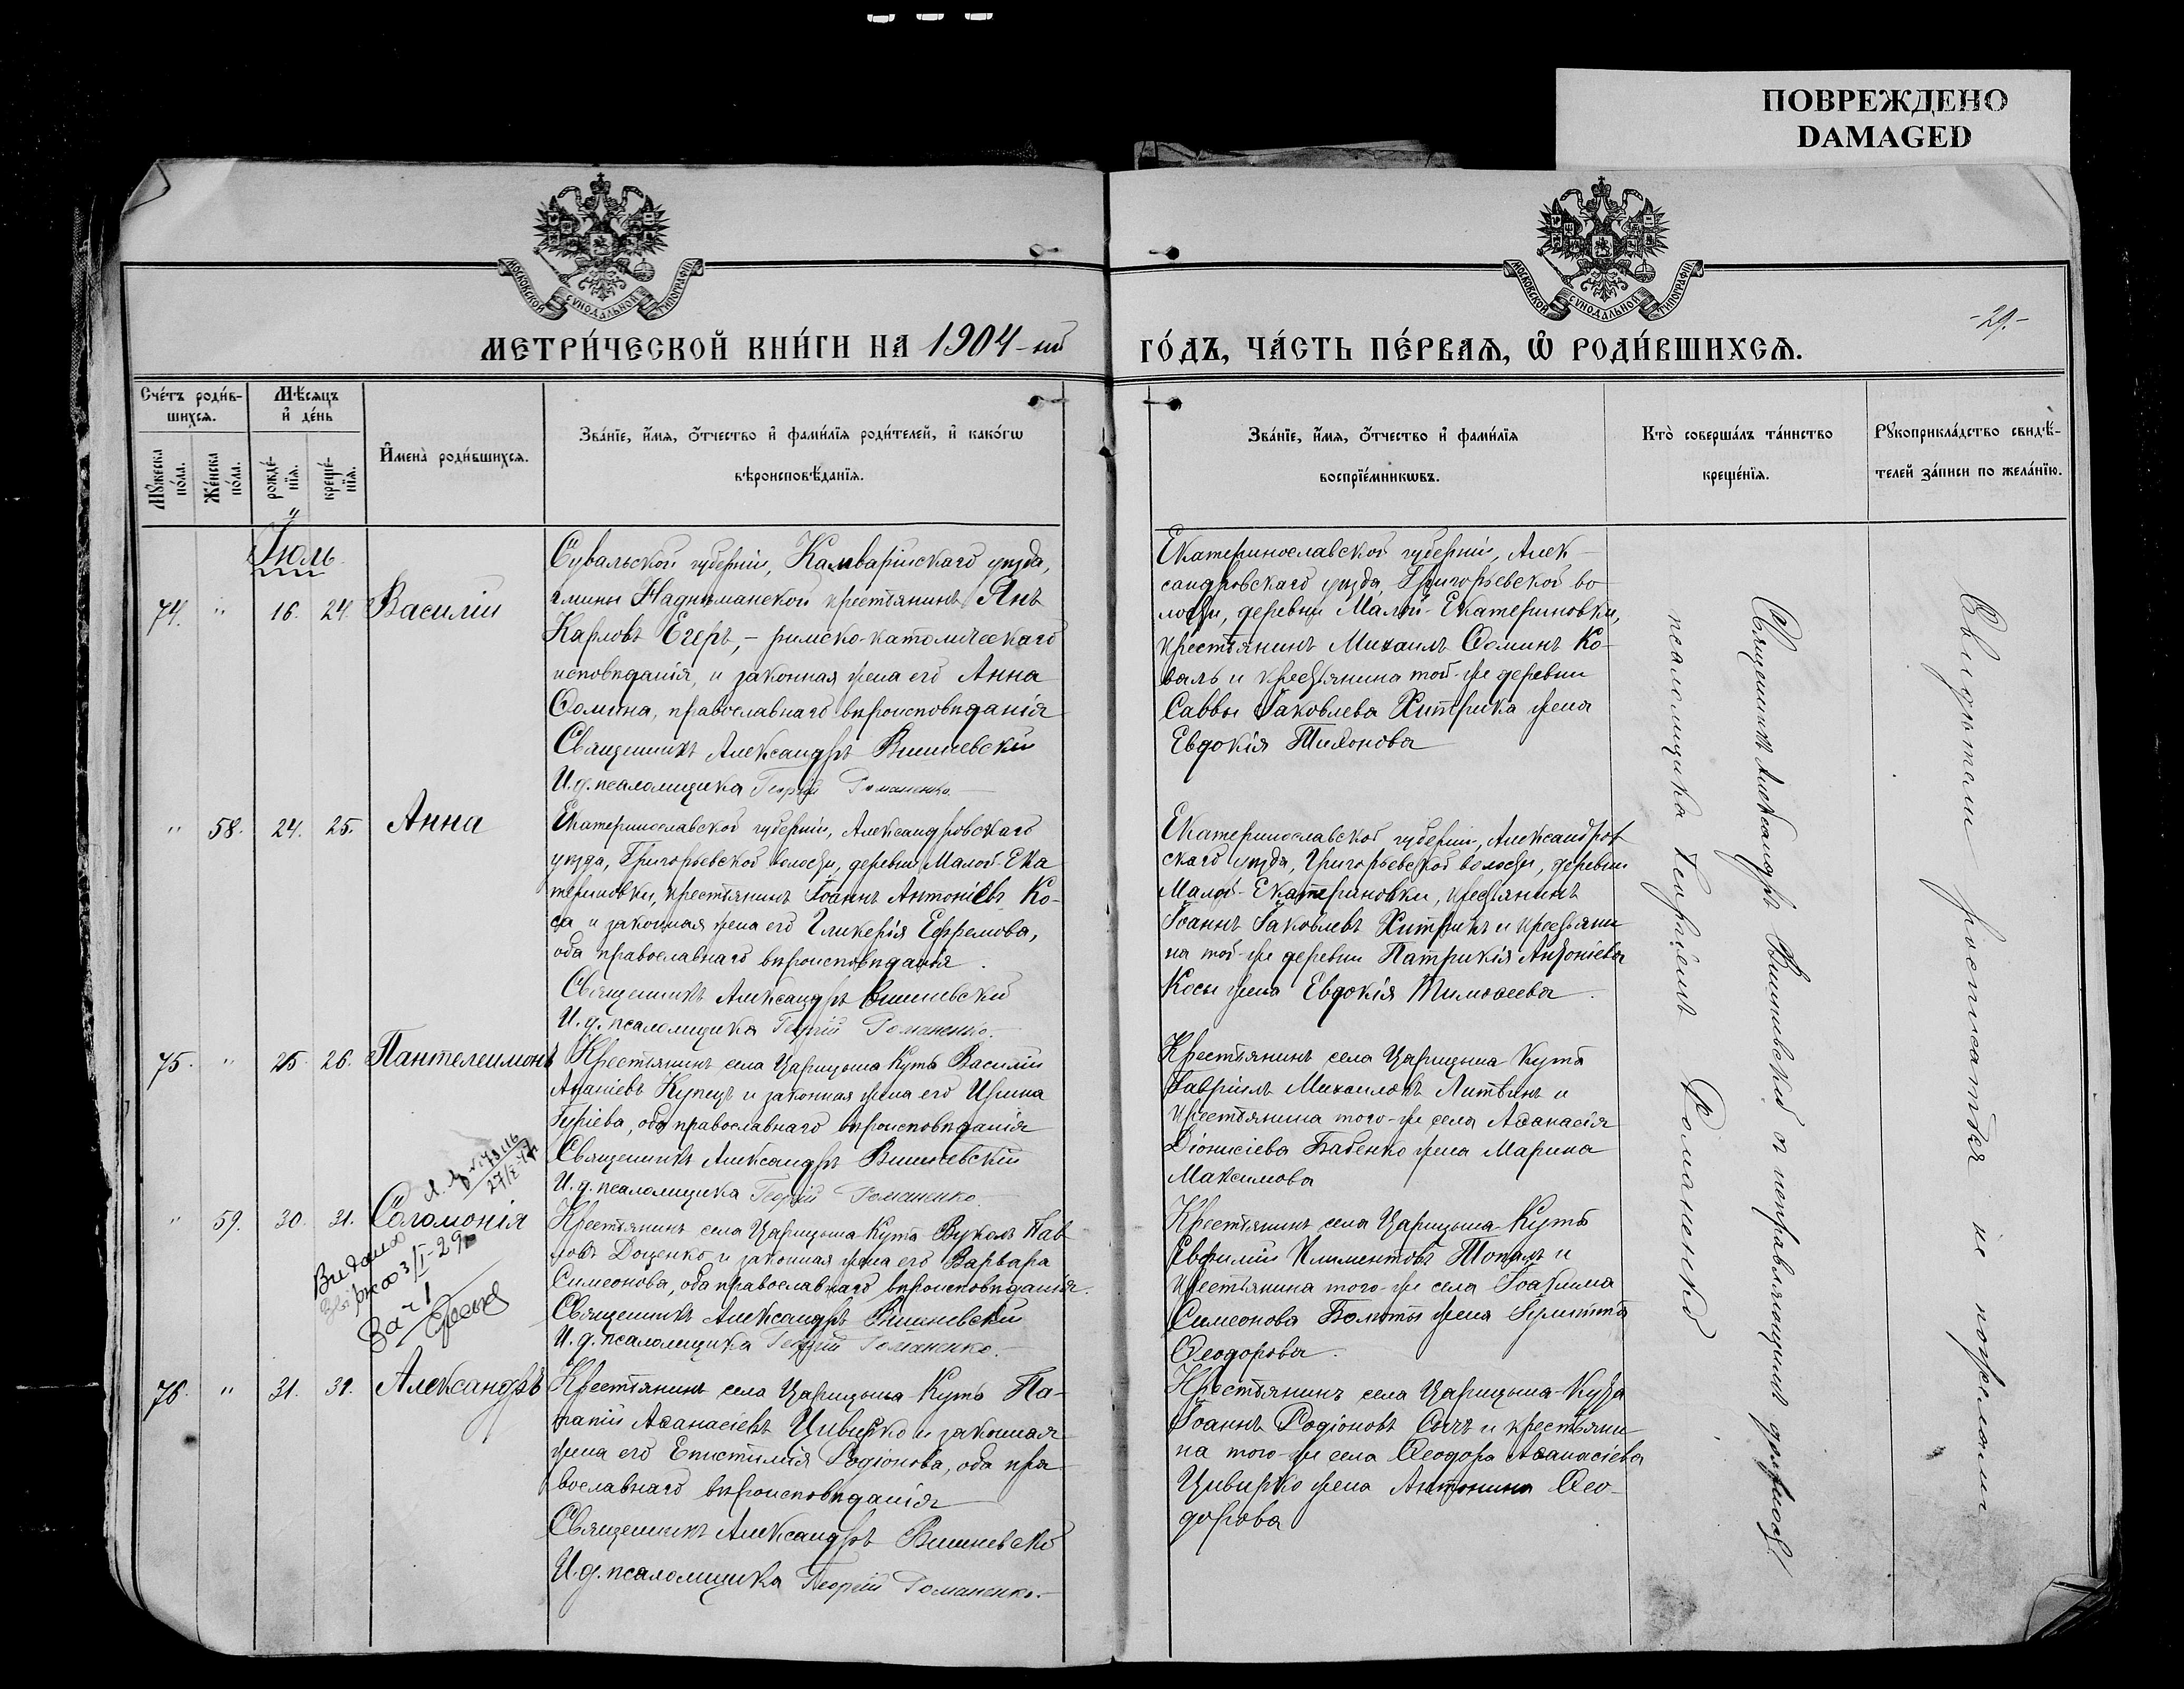 ПОВРЕЖДЕНО
DAMAGED
МОСКОВСКОЙ СѴНОДАЛЬНОЙ ТИПОГРАФІИ
МОСКОВСКОЙ СѴНОДАЛЬНОЙ ТИПОГРАФІИ
-29.-
МЕТРИ́ЧЕСКОЙ КНИ́ГИ НА 1904-ый
ГО́ДЪ, ЧА́СТЬ ПЕ́РВАѦ, Ѽ РОДИ́ВШИХСѦ.
Сче́тъ роди́в-
шихсѧ.
Мꙋ́жеска по́ла.
Же́нска по́ла.
Мѣ́сѧцъ
и҆ де́нь
рожде́-
нїѧ.
креще́-
нїѧ.
И҆мена̀ роди́вшихсѧ.
Зва́нїе, и҆́мѧ, ѻ҆́тчество и҆ фами́лїѧ роди́телей, и҆ како́гѡ
вѣроисповѣ́данїѧ.
Зва́нїе, и҆́мѧ, ѻ҆́тчество и҆ фами́лїѧ
воспрїе́мникѡвъ.
Кто̀ соверша́лъ та́инство
креще́нїѧ.
Рꙋкоприкла́дство свидѣ́-
телей за́писи по жела́нїю.
Іюль
74. " 16. 24. Василій
Сувальской губерніи, Калварійскаго уѣзда,
гмины Надниманской крестьянинъ Янъ
Карловъ Егеръ, - римско-католическаго
исповѣданія, и законная жена его Анна
Ѳомина, православнаго вѣроисповѣданія
Священникъ Александръ Вишневскій
И.д. псаломщика Георгій Романенко.
Екатеринославской губерніи, Алек-
сандровскаго уѣзда, Григорьевской во-
лости, деревни Малой-Екатериновки,
крестьянинъ Михаилъ Ѳоминъ Ко-
валь и крестьянина той-же деревни
Саввы Іаковлева Хитрика жена
Евдокія Тихонова
" 58. 24. 25. Анна
Екатеринославской губерніи, Александровскаго
уѣзда, Григорьевской волости, деревни Малой-Ека
териновки, крестьянинъ Іоаннъ Антоніевъ Ко-
са и законная жена его Гликерія Ефремова,
оба православнаго вѣроисповѣданія.
Священникъ Александръ Вишневскій
И.д. псаломщика Георгій Романенко.
Екатеринославской губерніи, Александров
скаго уѣзда, Григорьевской волости, деревни
Малой-Екатериновки, крестьянинъ
Іоаннъ Іаковлевъ Хитрикъ и крестьяни
на той-же деревни Патрикія Антоніева
Косы жена Евдокія Тимоѳеева.
75. " 25. 26. Пантелеимонъ
Крестьянинъ села Царицына Кутъ Василій
Ананіевъ Купецъ и законная жена его Ирина
Гуріева, оба православнаго вѣроисповѣданія
Священникъ Александръ Вишневскій
И.д. псаломщика Георгій Романенко
Крестьянинъ села Царицына Кута
Гавріилъ Михаиловъ Литвинъ и
крестьянина того-же села Аѳанасія
Діонисіева Бабенко жена Марина
Максимова
" 59. 30. 31. Соломонія
Видано
За ч 1
Крестьянинъ села Царицына-Кута Вуколъ Пав
ловъ Доценко и законная жена его Варвара
Симеонова, оба православнаго вѣроисповѣданія.
Священникъ Александръ Вишневскій
И.д. псаломщика Георгій Романенко.
Крестьянинъ села Царицына-Кутъ
Евфимій Климентовъ Топалъ и
крестьянина того-же села Іоакима
Симеонова Болоты жена Іулитта
Ѳеодорова.
76. " 31. 31. Александръ
Крестьянинъ села Царицына Кутъ Па-
тапій Аѳанасіевъ Цивирко и законная
жена его Епистимія Родіонова, оба пра
вославнаго вѣроисповѣданія
Священникъ Александръ Вишневскій
И.д. псаломщика Георгій Романенко.
Крестьянинъ села Царицына-Кута
Іоаннъ Родіоновъ Сычъ и крестьяни
на того-же села Ѳеодора Аѳанасіева
Цивирко жена Антонина Ѳео-
дорова
Священникъ Александръ Вишневскій съ исправляющимъ должность
псаломщика Георгіемъ Романенко
Свидѣтели росписаться не пожелали